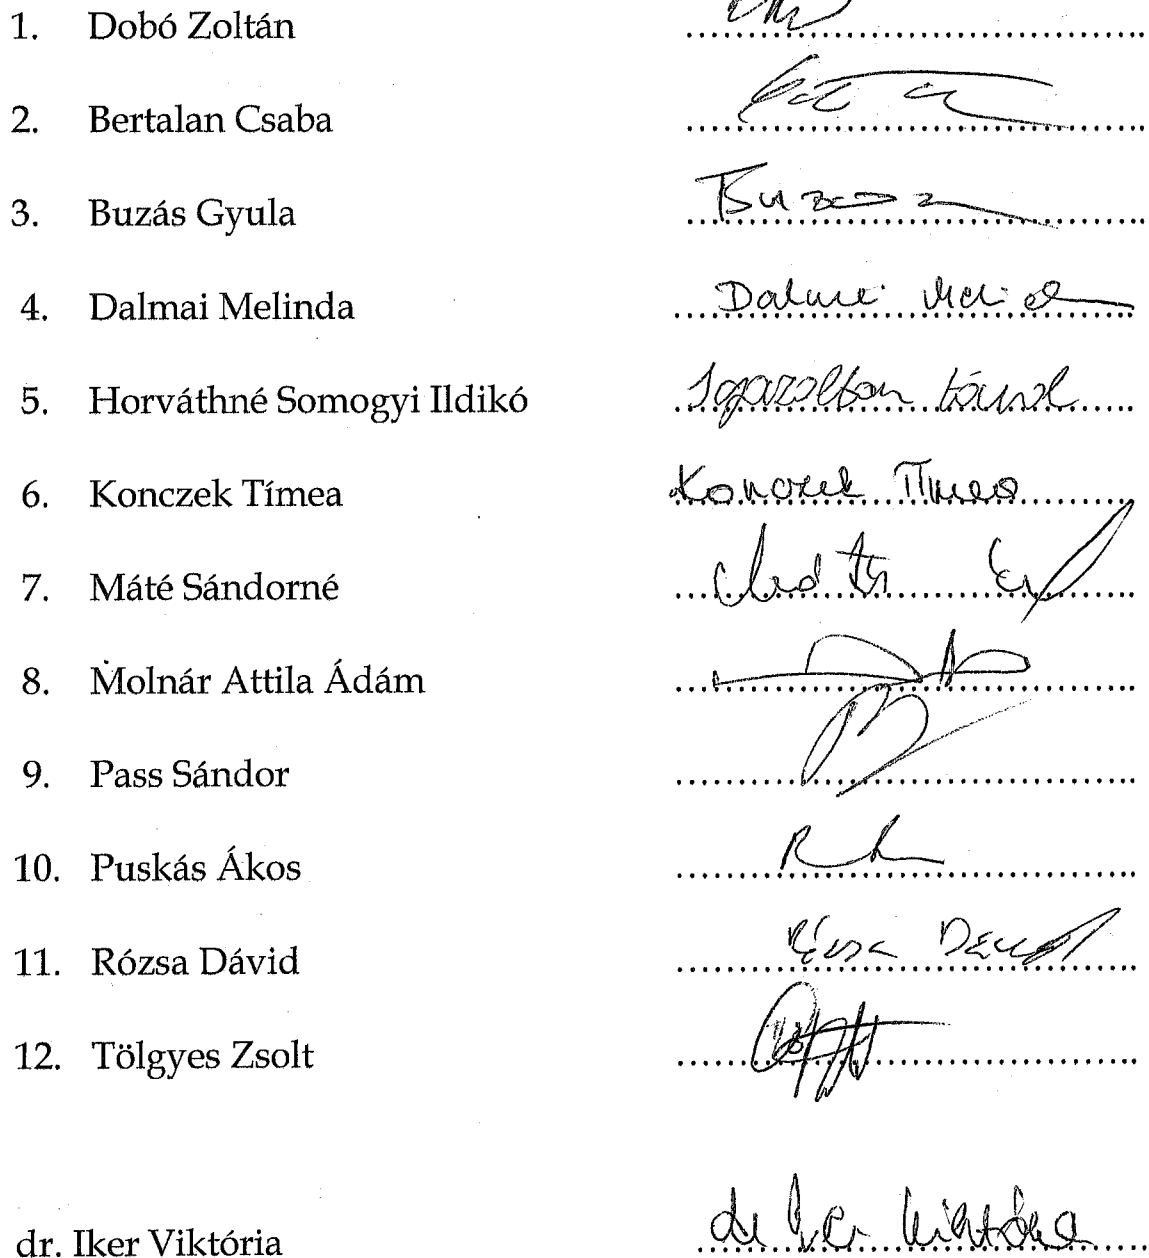 1. Dobó Zoltán
2. Bertalan Csaba
3. Buzás Gyula Buzás
4. Dalmai Melinda Dalmai Melinda
5. Horváthné Somogyi Ildikó Igazoltan távol
6. Konczek Tímea Konczek Tímea
7. Máté Sándorné
8. Molnár Attila Ádám
9. Pass Sándor
10. Puskás Ákos
11. Rózsa Dávid Rózsa Dávid
12. Tölgyes Zsolt
dr. Iker Viktória dr Iker Viktória